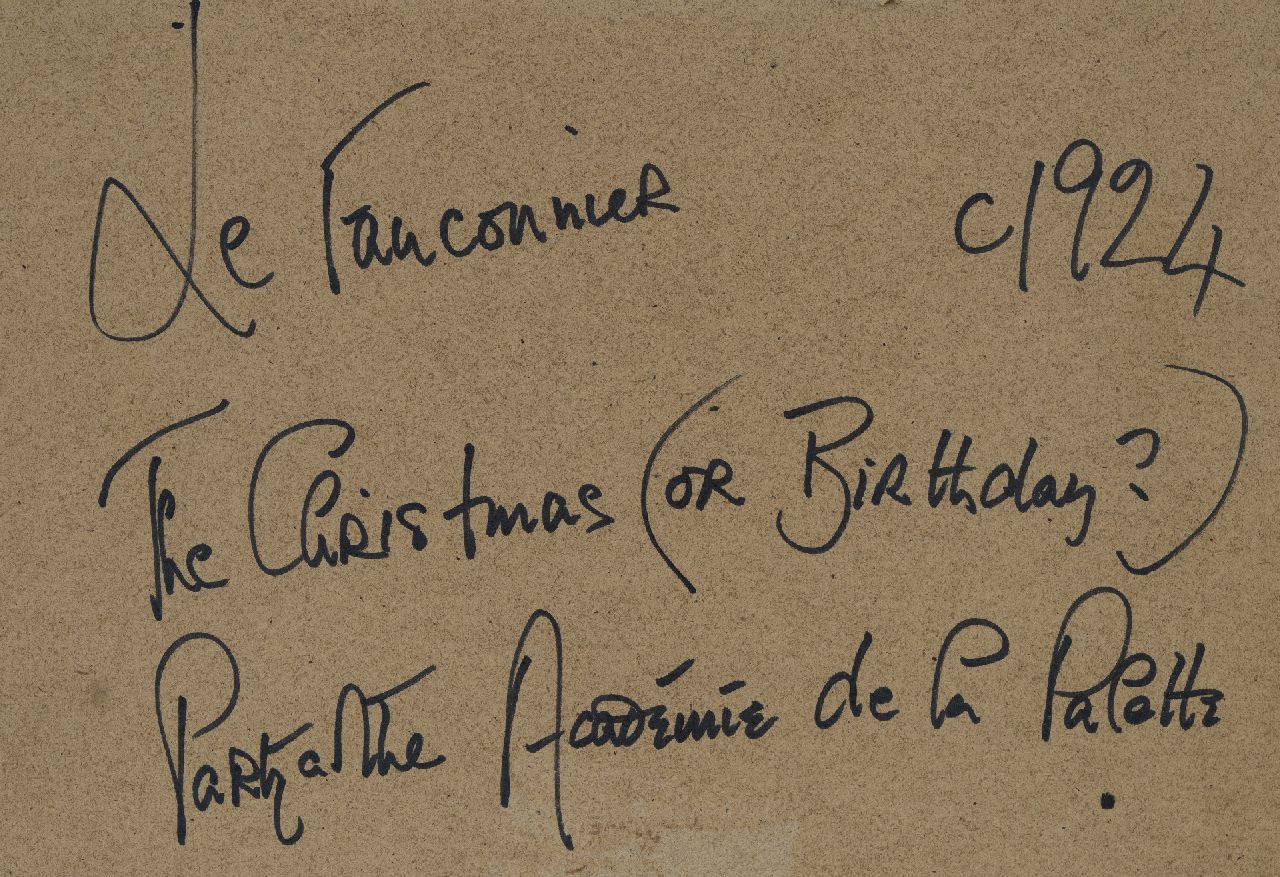 Le Fauconnier c1924
The Christmas (or Birthday?)
Party at the Académie de la Palette